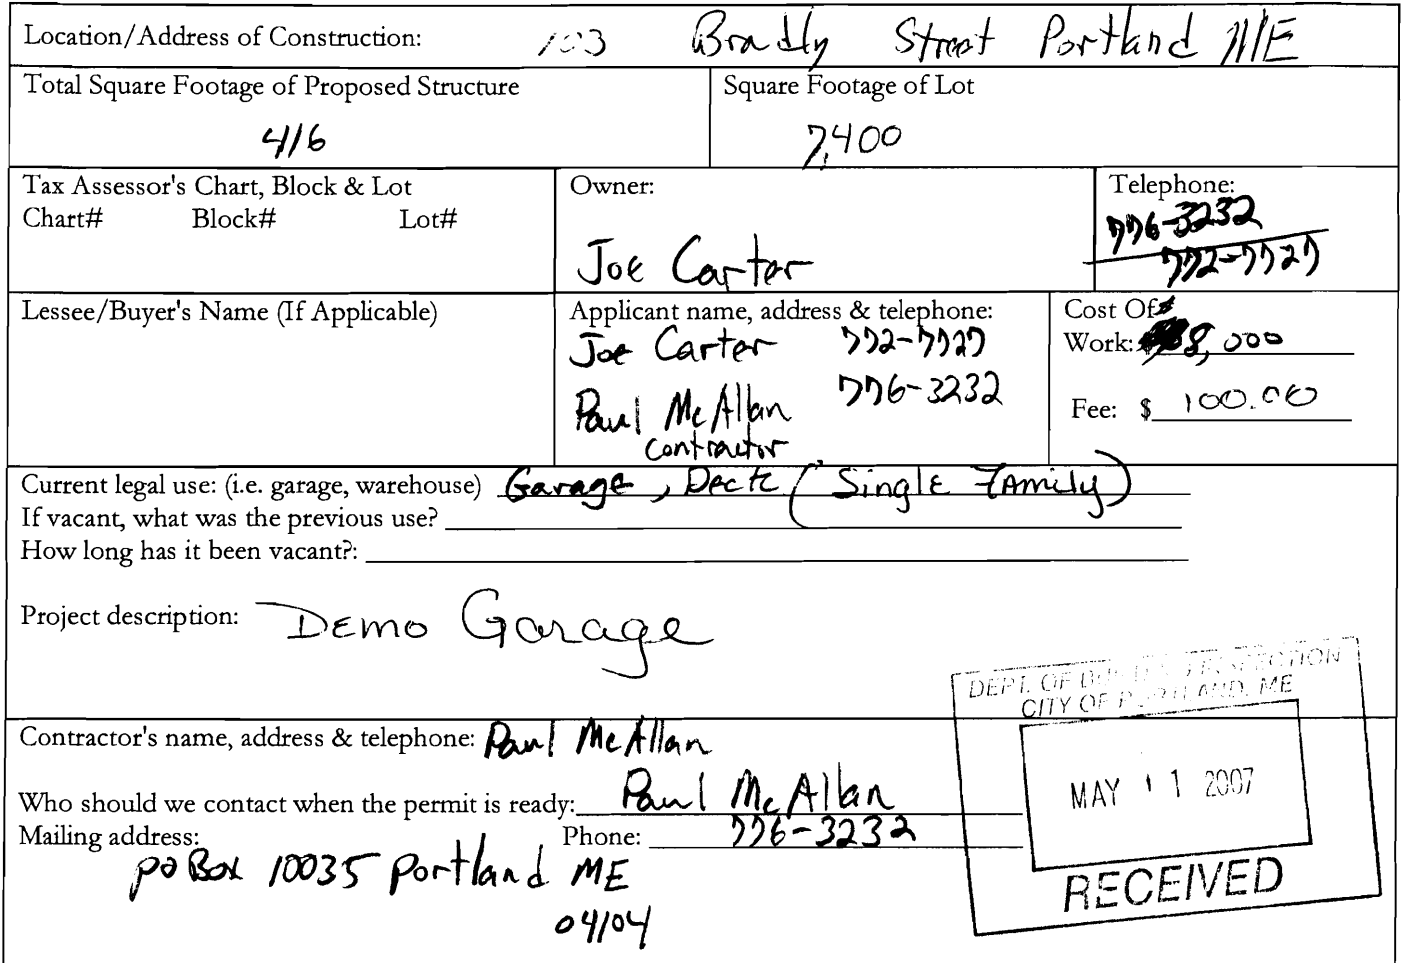 Location/Address of Construction: 103 Bradly Street Portland ME
Total Square Footage of Proposed Structure
416
Square Footage of Lot
7,400
Tax Assessor's Chart, Block & Lot
Chart# Block# Lot#
Owner:
Joe Carter
Telephone:
776-3232
772-7727
Lessee/Buyer's Name (If Applicable)
Applicant name, address & telephone:
Joe Carter 772-7727
Paul McAllan 776-3232
contractor
Cost Of $
Work: 8,000
Fee: $ 100.00
Current legal use: (i.e. garage, warehouse) Garage, Deck (Single Family)
If vacant, what was the previous use?
How long has it been vacant?:
Project description: Demo Garage
DEPT. OF BUILDING INSPECTION
CITY OF PORTLAND, ME
MAY 11 2007
RECEIVED
Contractor's name, address & telephone: Paul McAllan
Who should we contact when the permit is ready: Paul McAllan
Mailing address: Phone: 776-3232
po Box 10035 Portland ME
04104